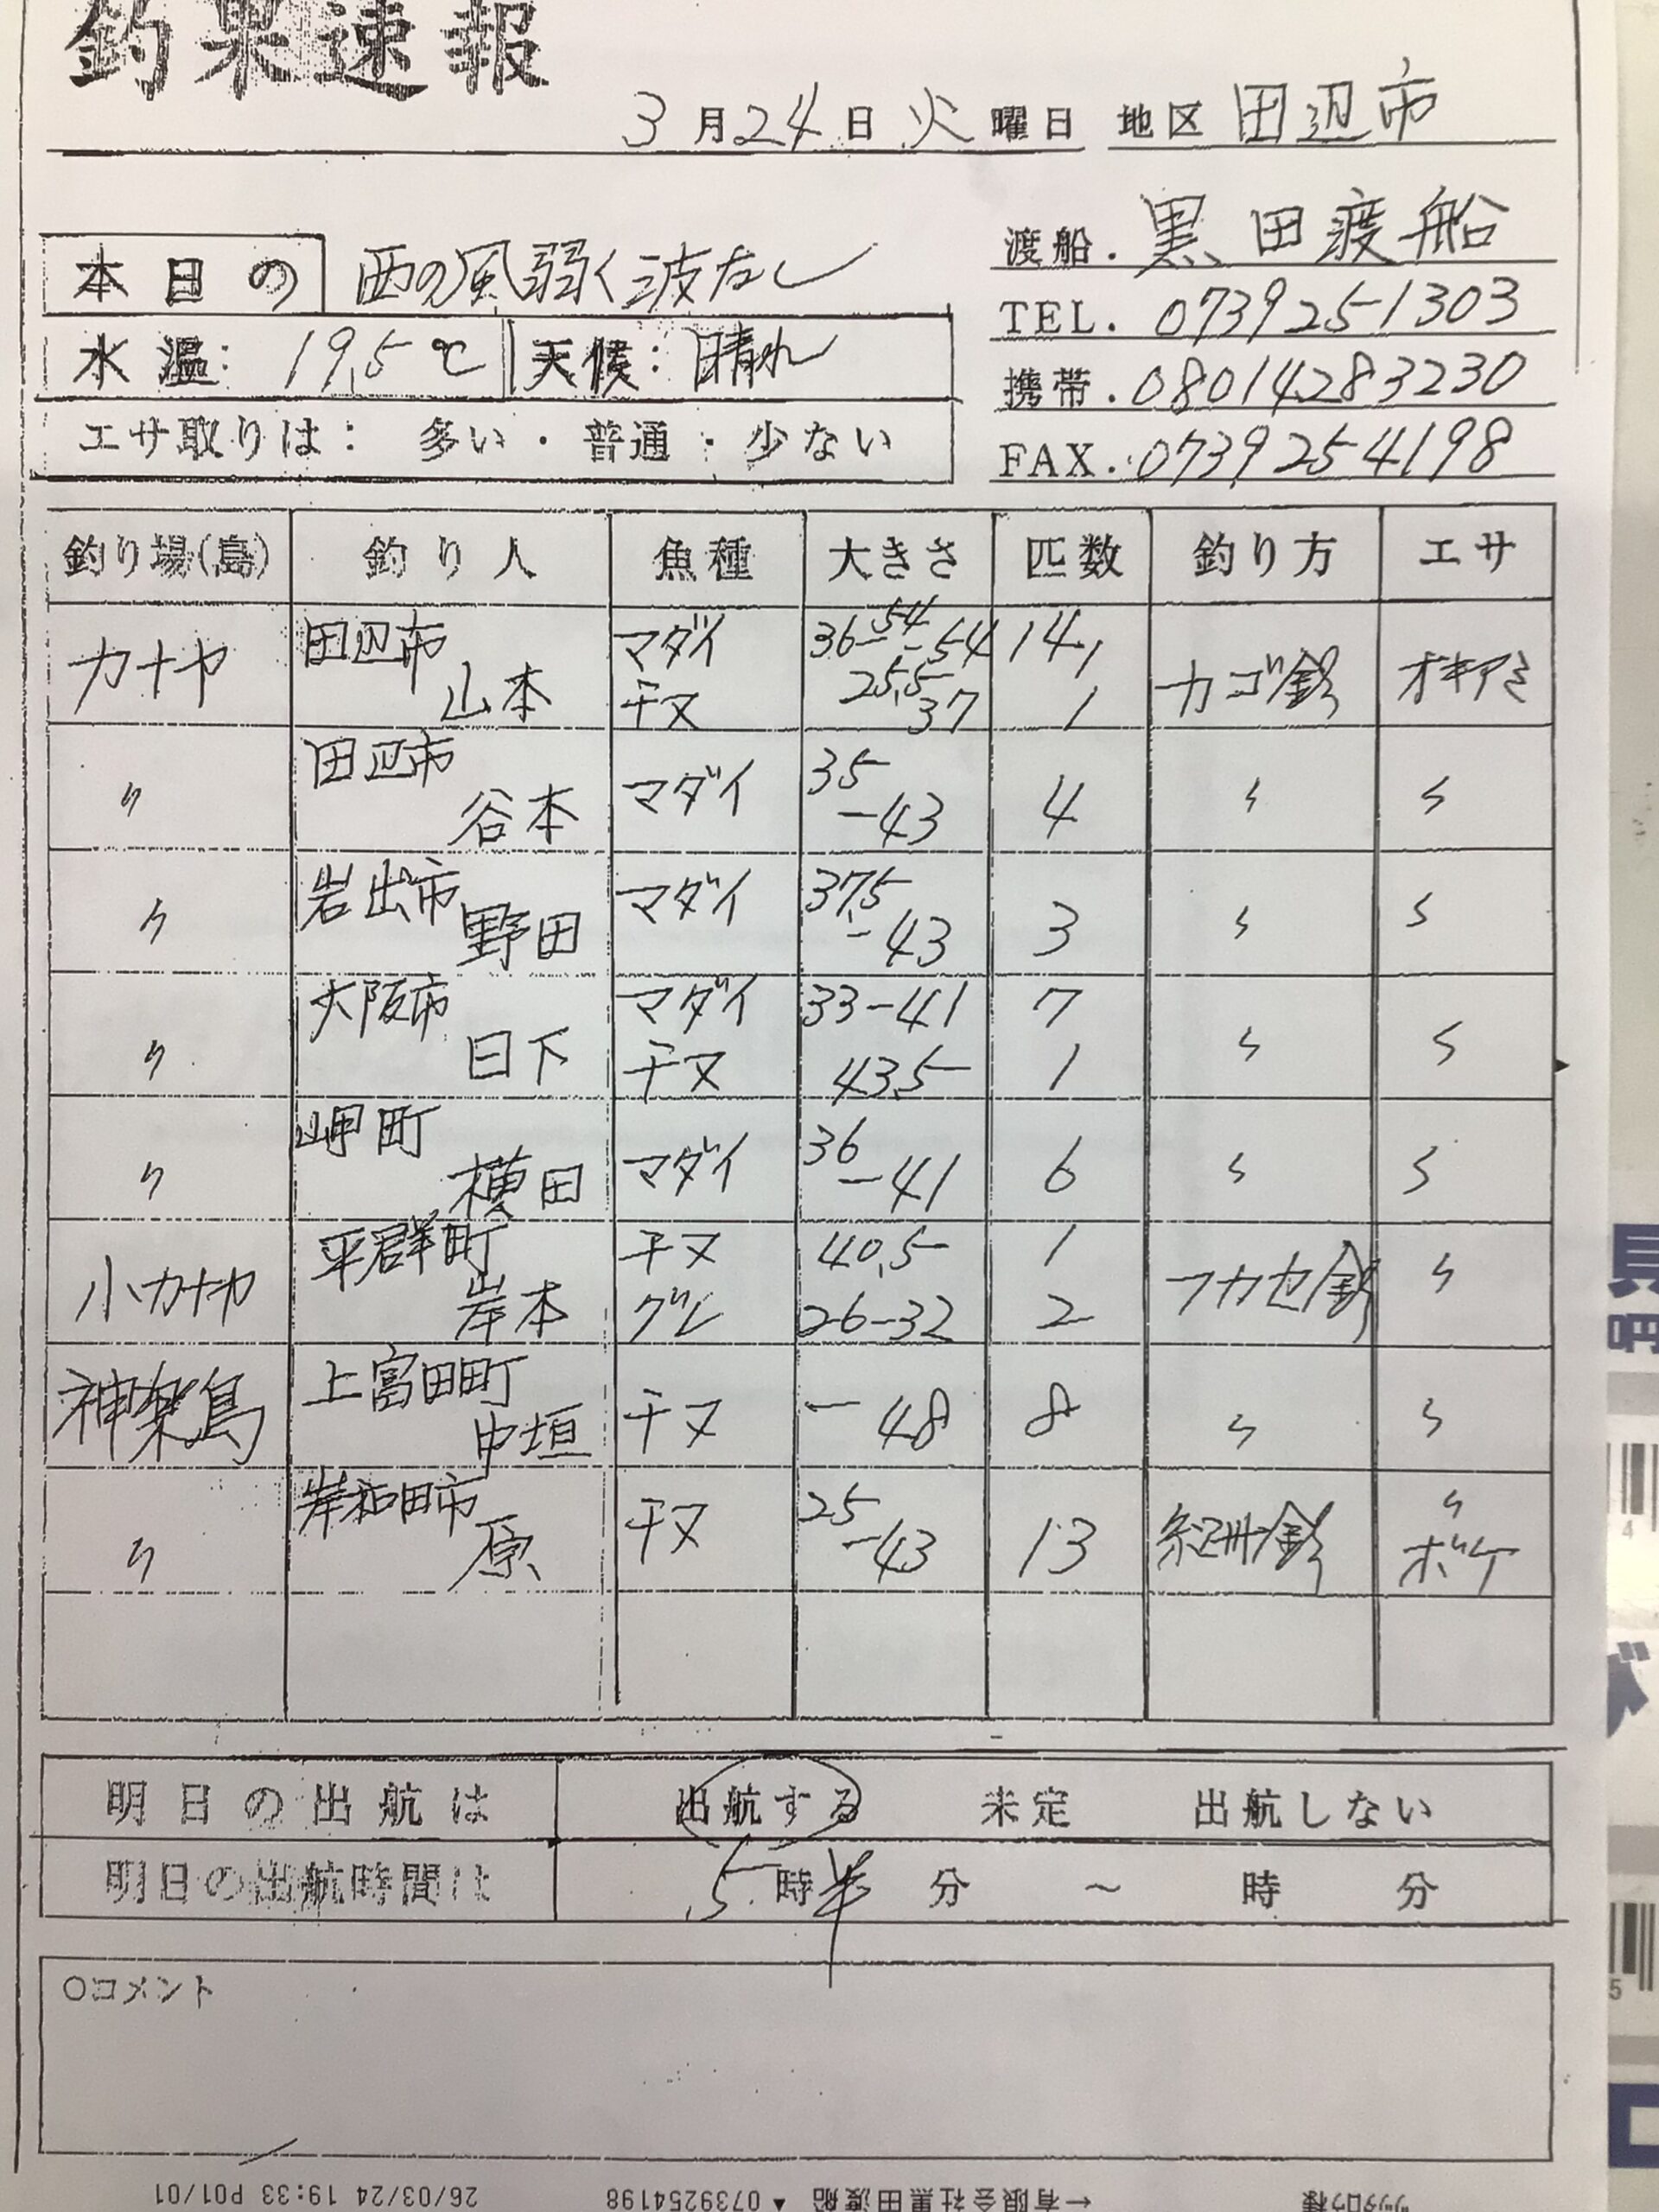 釣果速報
3月24日 火曜日 地区 田辺市
渡船. 黒田渡船
本日の 西の風弱く波なし
TEL. 0739251303
水温: 19.5℃ 天候: 晴れ
携帯. 08014283230
エサ取りは: 多い・普通・少ない
FAX. 0739254198
釣り場(島) 釣り人 魚種 大きさ 匹数 釣り方 エサ
カナヤ 田辺市 山本 マダイ 36-54 14, カゴ釣 オキアミ
チヌ 37 1
〃 田辺市 谷本 マダイ 35-43 4 〃 〃
〃 岩出市 野田 マダイ 37.5-43 3 〃 〃
〃 大阪市 日下 マダイ 33-41 7 〃 〃
チヌ 43.5 1
〃 岬町 マダイ 36-41 6 〃 〃
小カナヤ 平群町 岸本 チヌ 40.5 1 フカセ釣 〃
グレ 26-32 2
神楽島 上富田町 中垣 チヌ -48 8 〃 〃
〃 岸和田市 原 チヌ 25-43 13 紀州釣 〃 ボケ
明日の出航は 出航する 未定 出航しない
明日の出航時間は 5時半 分 ~ 時 分
○コメント
26/03/24 19:33 P01/01 ←有限会社黒田渡船 ▲ 0739254198